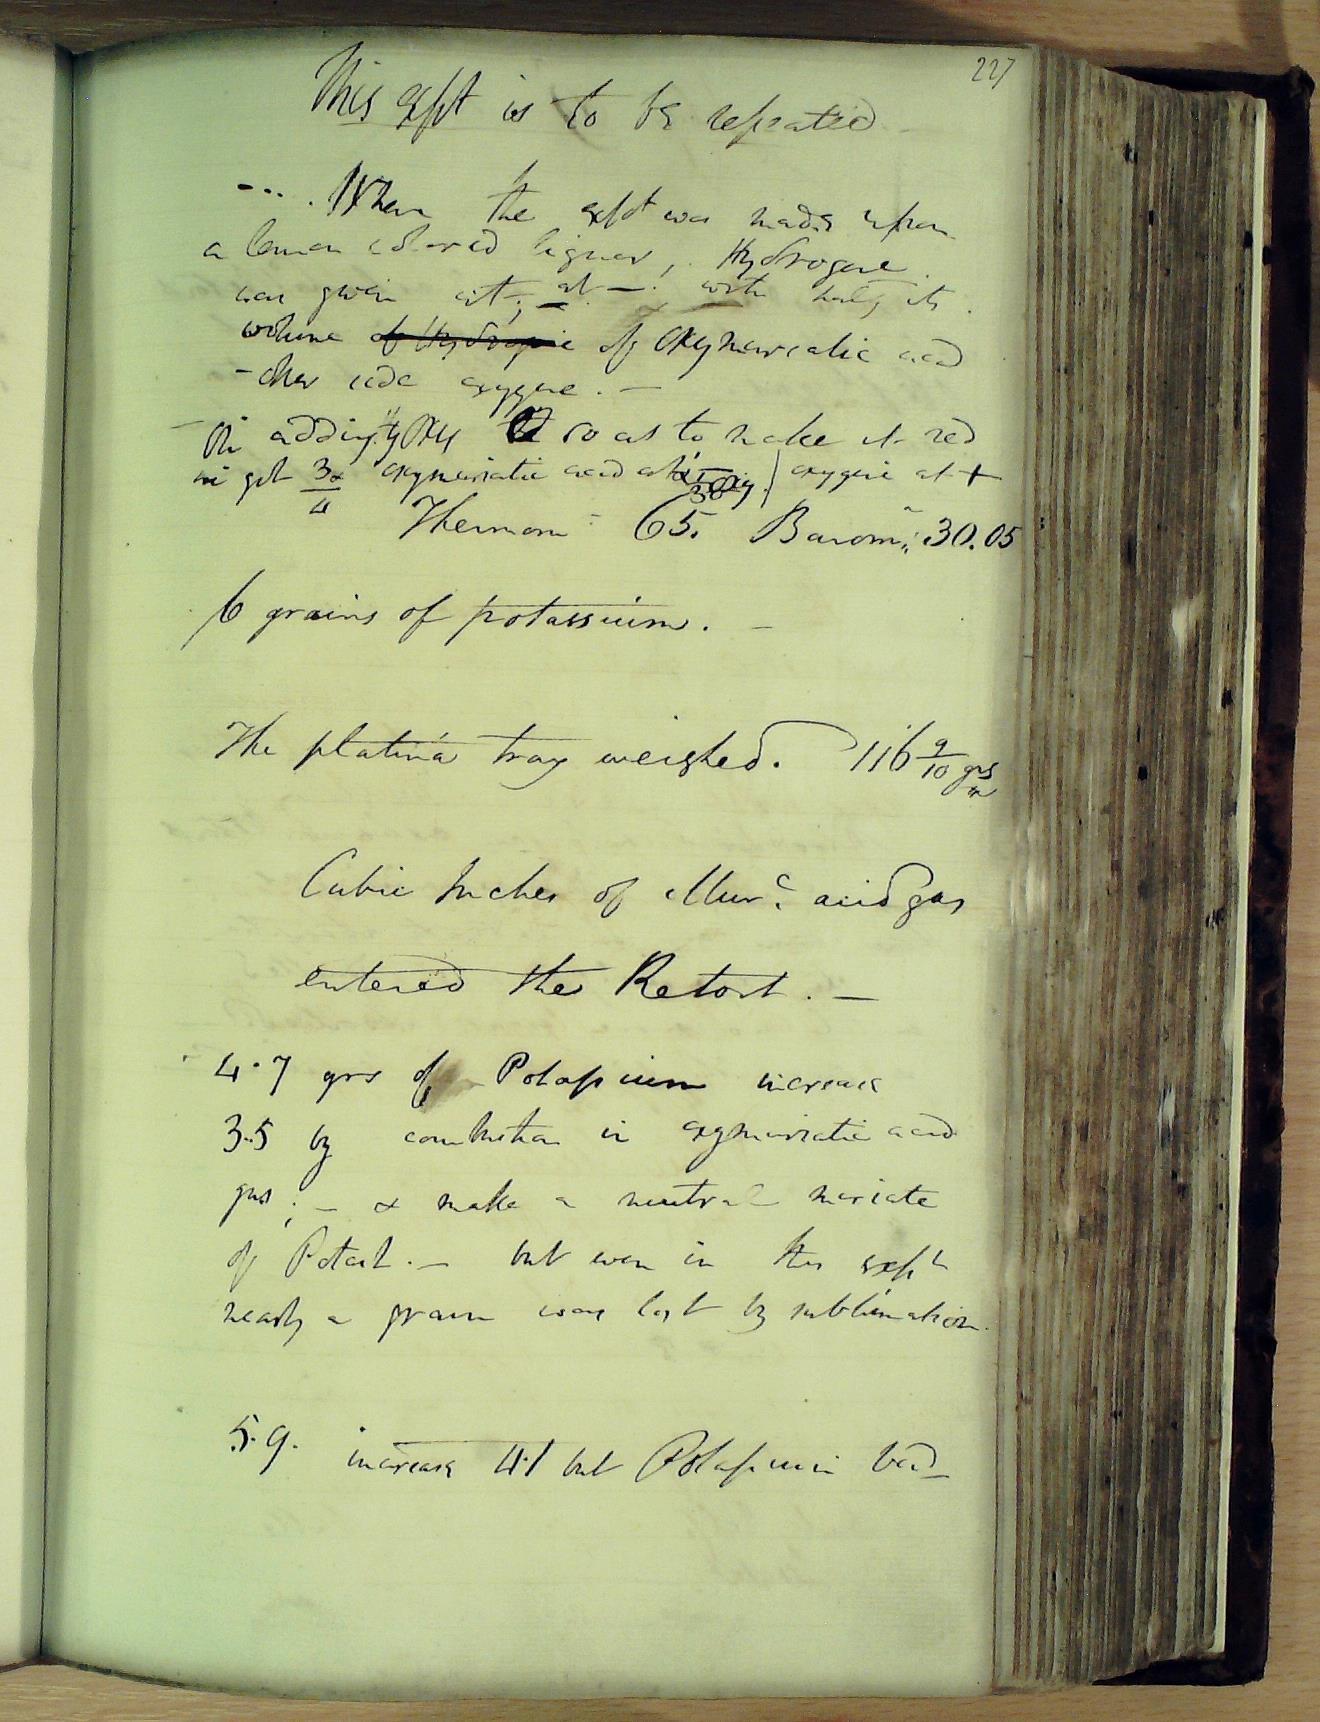 227
This expt is to be repeated
--- . When the expt was made upon
a lemon colored liquor, Hydrogene
was given at - with half its
volume of Hydrogene of Oxymuriatic acid
other side oxygene. —
On adding Oxy so as to make it red
we got 3/4 oxymuriatic acid oxygene at +
Thermom 65. Barom: 30.05
6 grains of potassium. —
The platina tray weighed. 116 9/10 grs
Cubic Inches of Murc acid gas
entered the Retort. —
4.7 grs of Potassium increase
3.5 by combustion in oxymuriatic acid
gas; — & make a neutral muriate
of Potash. — but even in this expt
nearly a grain was lost by sublimation.
5.9. increase 4.1 but Potassium bad —